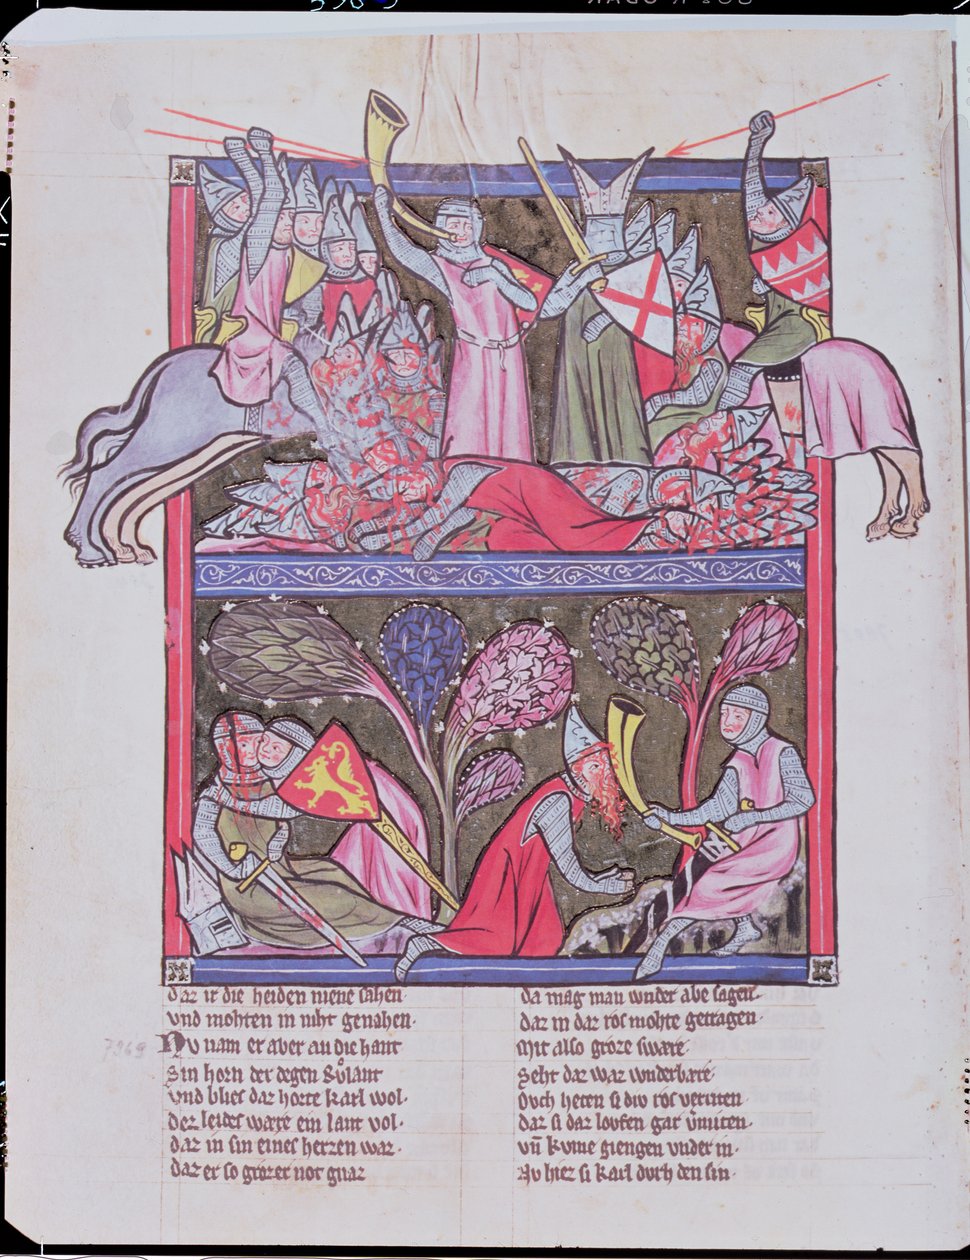 daz ir die heiden niene sahen
vnd mohten in niht genahen.
Nv nam er aber an die hant
Sin horn der degen Růlant
vnd blies daz horte karl wol.
der leides wære ein lant vol.
daz in sin eines herzen war.
daz er so grozer not gnar
da mag man wnder abe sagen.
daz in daz ros mohte getragen.
Mit also groze swære
Seht daz war wnderbære
dvch heten si div ros veriten.
daz si daz lovfen gar vermiten.
vn̄ kvme giengen vnder in.
Nv hiez si karl dvrh den sin.
7969